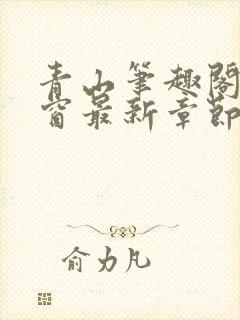 青山笔趣阁
窗最新章节
俞力凡